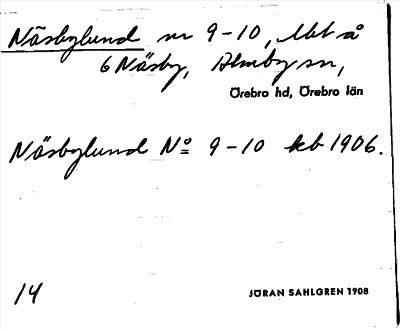 Näsbylund nr 9-10, lht å
6 Näsby, Almby sn,
Örebro hd, Örebro län
Näsbylund No 9-10 kb 1906.
14
JÖRAN SAHLGREN 1908